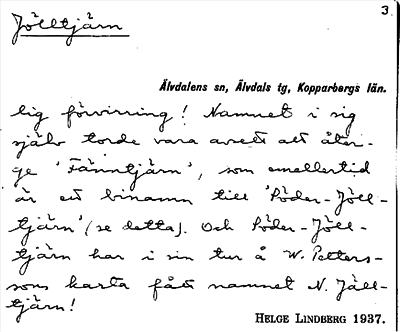 3
Jölltjärn
Älvdalens sn, Älvdals tg, Kopparbergs län.
lig förvirring! Namnet i sig
själv torde vara avsett att åter-
ge 'Fänntjärn', som emellertid
är ett binamn till 'Söder-Jöll-
tjärn' (se detta). Och Söder-Jöll-
tjärn har i sin tur å W. Petters-
sons karta fått namnet N. Jöll-
tjärn!
HELGE LINDBERG 1937.